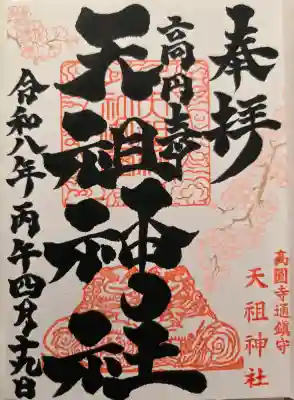 奉拝
高円寺
天祖神社
令和八年丙午四月十九日
高圓寺逎鎮守
天祖神社